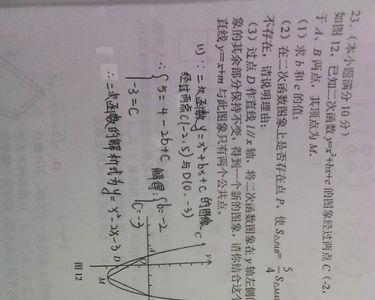 23.（本小题满分10分）
如图12，已知二次函数y=x²+bx+c的图象经过两点C(-2,
于A、B两点，其顶点为M.
（1）求b和c的值；
（2）在二次函数图象上是否存在点P，使S△PAB=5/4 S△MAB
不存在，请说明理由；
（3）过点D作直线l//x轴，将二次函数图象在y轴左侧
象的其余部分保持不变，得到一个新的图象，请你结合这个
直线y=x+m与此图象只有两个公共点.
(1) ∵二次函数y=x²+bx+c的图像
经过两点C(-2,5)与D(0,-3)
∴{5=4-2b+C 解得:{b=-2
-3=C C=-3
∴二次函数的解析式为y=x²-2x-3
C
y
D
M
图12